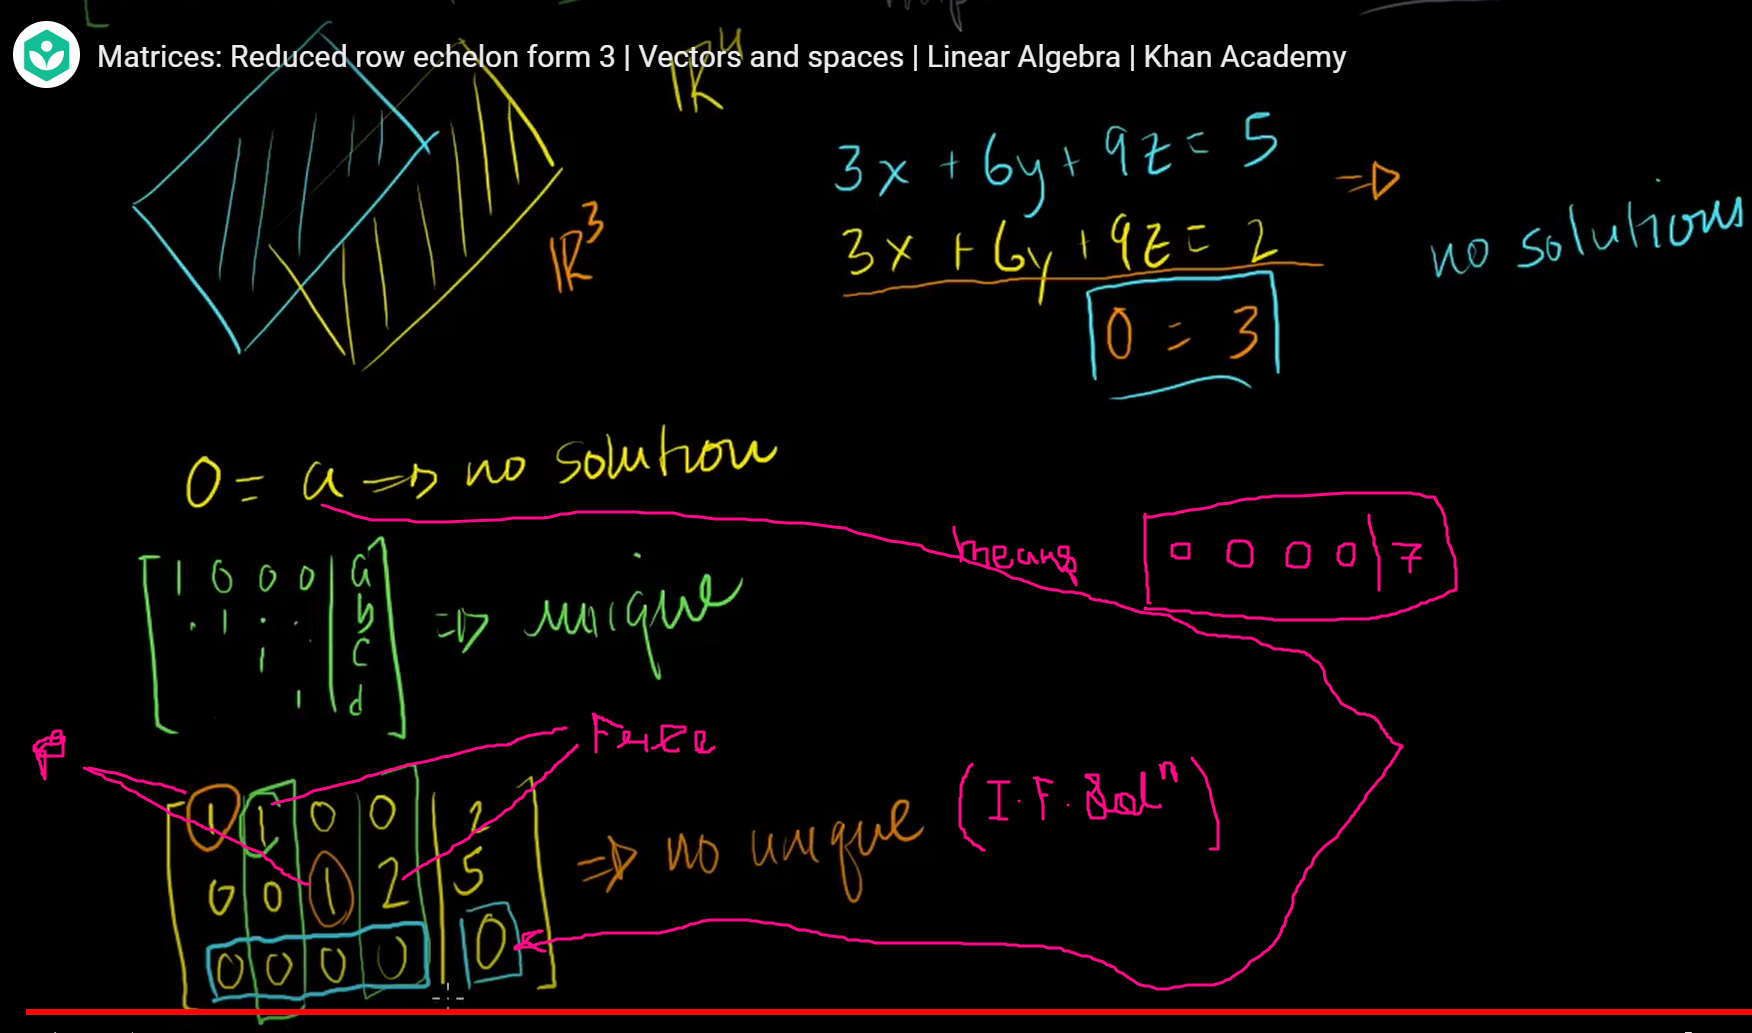 Matrices: Reduced row echelon form 3 | Vectors and spaces | Linear Algebra | Khan Academy
ℝ⁴
3x + 6y + 9z = 5 ⇒
3x + 6y + 9z = 2
no solutions
ℝ³
0 = 3
0 = a ⇒ no solution
means
0 0 0 0 | 7
1 0 0 0 | a
. 1 . . | b
1 | c
1 | d
⇒ unique
P
Free
1 1 0 0 | 2
0 0 1 2 | 5
0 0 0 0 | 0
⇒ no unique
(I.F. Solⁿ)